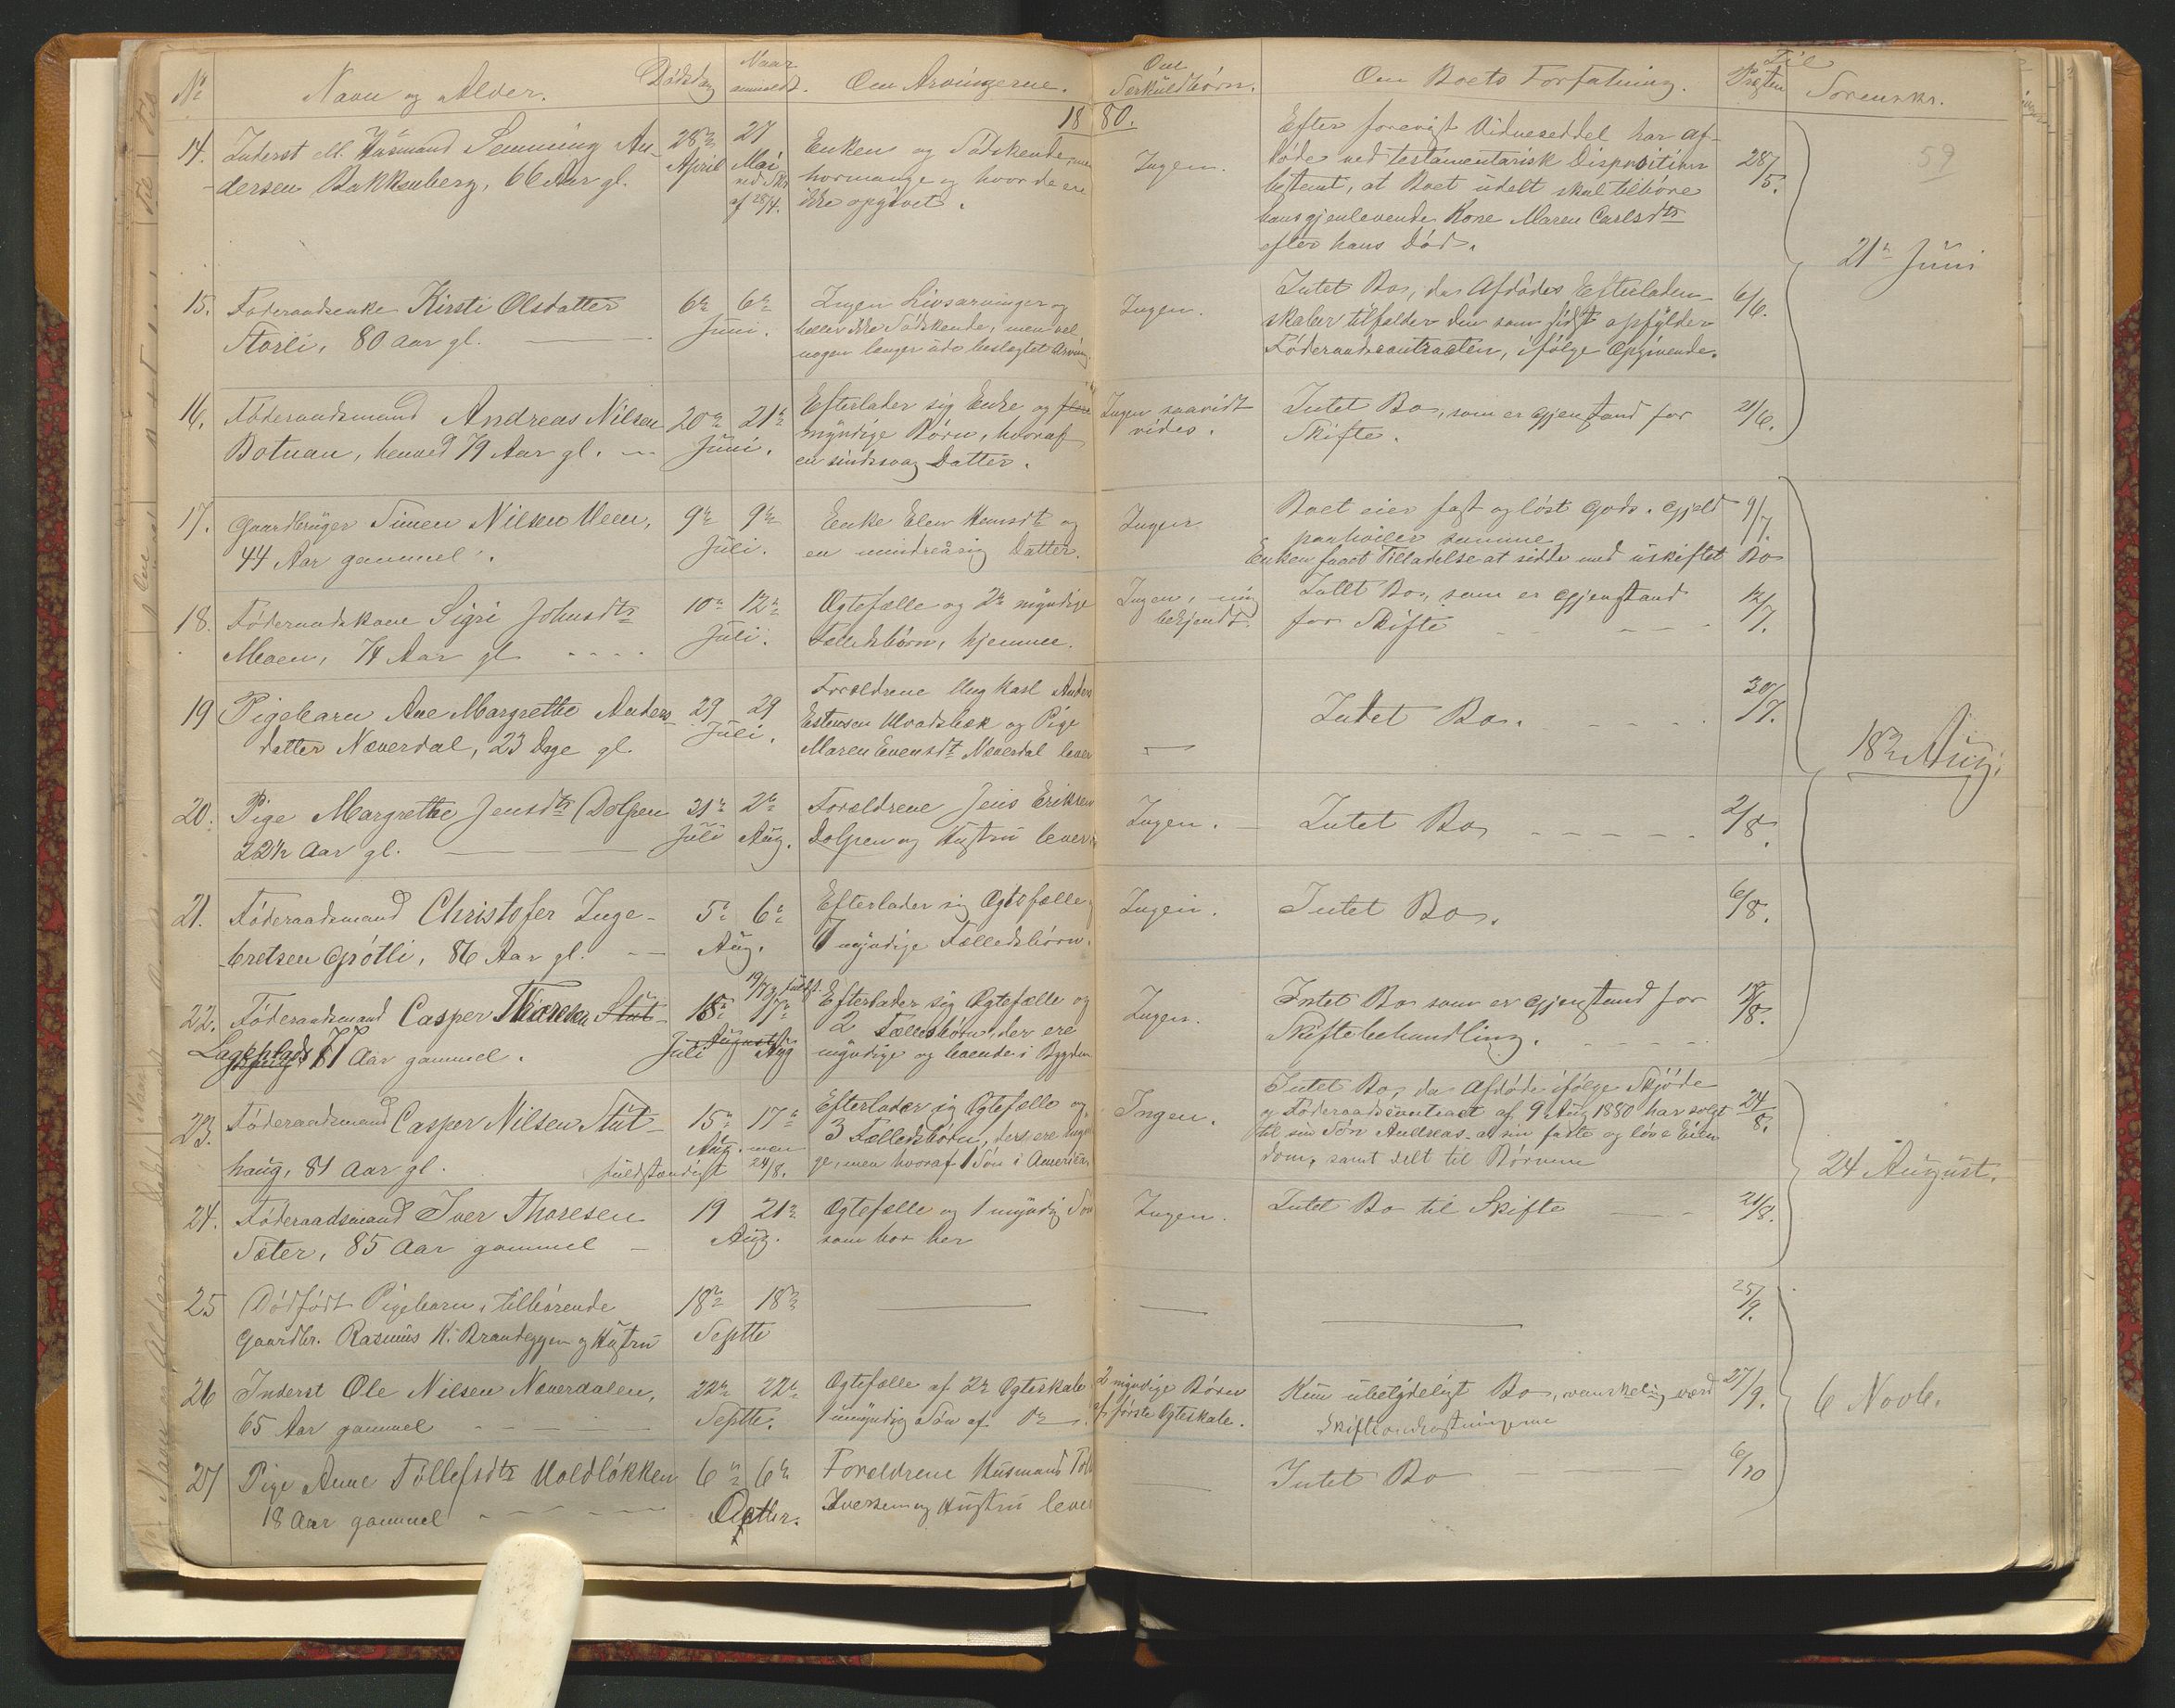 No
Navn og Alder.
Dödsdag
Naar
anmeldt.
Om Arvingerne.
Om
Særkuldbörn.
Om Boets Forfatning.
Til
Præsten
Sorenskr.
18 80.
59
14. Inderst M. Husmand Semming An-
dersen Bakkenberg, 66 Aar gl.
28de
April
27
Mai
ved Skr
af 28/4.
Enken og Södskende, men
hormange og hvor de ere
ikke opgivet.
Ingen.
Efter forevist Vidneseddel har af-
döde ved testamentarisk Disposition
bestemt, at Boet udelt skal tilhöre
hans gjenlevende Kone Maren Carlsdtr
efter hans Död.
28/5.
21de Juni
15. Föderaadsenke Kirsti Olsdatter
Storli, 80 Aar gl.
6te 6te
Juni.
Ingen Livsarvinger og
heller ikke Södskende, men vel
nogen længer ude beslægtet Arving
Ingen.
Intet Bo, da Afdödes Efterladen-
skaber tilfalder den som sidst opfylder
Föderaadscontracten, ifölge Opgivende.
6/6.
16. Föderaadsmand Andreas Nilsen
Botnan, henved 79 Aar gl.
20de 21de
Juni.
Efterlader sig Enke og flere
myndige Börn, hvoraf
en sindssvag Datter.
Ingen saavidt
vides.
Intet Bo, som er Gjenstand for
Skifte.
21/6.
17. Gaardbruger Simen Nilsen Meen,
44 Aar gammel.
9de 9de
Juli.
Enke Elen Hansdtr og
en mindreårig Datter.
Ingen.
Boet eier fast og löst Gods. Gjeld
paahviler samme
Enken faaet Tilladelse at sidde med uskiftet Bo
9/7.
18. Föderaadskone Sigri Johnsdtr
Moen, 74 Aar gl
10de 12te
Juli.
Ogtefælle og 2de myndige
Fælledsbörn, hjemme.
Ingen, mig
bekjendt.
Intet Bo, som er Gjenstand
for Skifte
12/7.
19 Pigebarn Ane Margrethe Anders
datter Næverdal, 23 Dage gl.
29 29
Juli.
Forældrene Ung Karl Anders
Estensen Moadsbæk og Pige
Maren Evensdtr Næverdal lever
Intet Bo.
30/7.
18de Aug.
20. Pige Margrethe Jensdtr Dolpen
22½ Aar gl.
31te
Juli
2de
Aug.
Forældrene Jens Eriksen
Dolpen og Hustru lever
Ingen.
Intet Bo
2/8.
21. Föderaadsmand Christofer Inge-
bretsen Grötli, 86 Aar gl.
5te 6te
Aug.
Efterlader sig Ogtefælle
7 myndige Fælledsbörn.
Ingen.
Intet Bo.
6/8.
22. Föderaadsmand Casper Thoresen Stut-
Lageplads 77 Aar gammel.
18de
Juli
17de
August
Aug
Efterlader sig Ogtefælle og
2 Fælledsbörn, der ere
myndige og boende i Bygden
Ingen.
Intet Bo som er Gjenstand for
Skiftebehandling.
18/8.
23. Föderaadsmand Casper Nilsen Stut-
haug, 81 Aar gl.
15de 17de
Aug. men
fuldstændigt 24/8.
Efterlader sig Ogtefælle og
3 Fælledsbörn, der ere myndi
ge, men hvoraf 1 Sön i Amerika.
Ingen.
Intet Bo, da Afdöde ifölge Skjöde
og Föderaadscontract af 9 Aug 1880 har solgt
til sin Sön Andreas al sin faste og löse Eien
dom, samt delt til Börnene
24/8.
24 August.
24. Föderaadsmand Iver Thoresen
Sæter, 85 Aar gammel
19 21de
Aug.
Ogtefælle og 1 myndig Sön
som bor her
Ingen.
Intet Bo til Skifte
21/8.
25 Dödfödt Pigebarn, tilhörende
Gaardbr. Rasmus K. Brandeggen og Hustru
18de 18de
Septbr
25/9.
26 Inderst Ole Nilsen Næverdalen,
65 Aar gammel
22de 22de
Septbr.
Ogtefælle af 2de Ogteskab
1 umyndig Sön af Do
2 myndige Börn
af förste Ogteskab.
Kun ubetydeligt Bo, vanskelig værd
Skifteomkostningerne
27/9.
6 Novb.
27 Pige Anne Tollefsdtr Moldlökken
18 Aar gammel
6te 6te
Octbr.
Forældrene Husmand Toll
Iversen og Hustru lever
Intet Bo
6/10